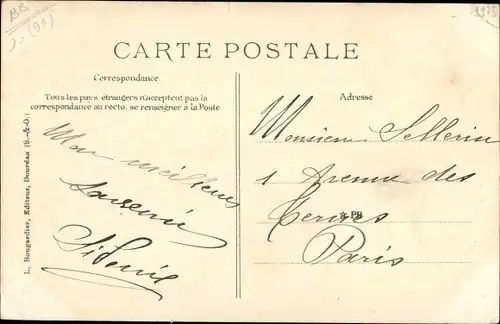 BB
(91)
CARTE POSTALE
Correspondance
Tous les pays étrangers n'acceptent pas la
correspondance au recto. se renseigner à la Poste
Adresse
Mon meilleur
souvenir
L. Bougardier, Editeur, Dourdan (S.-&-O.)
Monsieur Sellerin
1 Avenue des
Ternes
PB
Paris